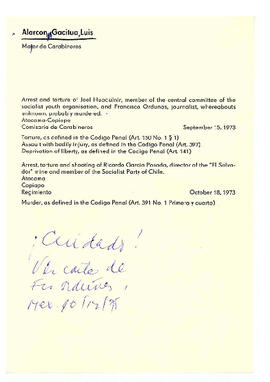 Alarcon Gacitua, Luis
Major de Carabineros
Arrest and torture of Joel Huaquinir, member of the central committee of the
socialist youth organisation, and Francisco Ordunas, journalist, whereabouts
unknown, probably murdered.
Atacama-Copiapo
Comisaria de Carabineros September 15, 1973
Torture, as defined in the Codigo Penal (Art. 150 No. 1 § 1)
Assault with bodily injury, as defined in the Codigo Penal (Art. 397)
Deprivation of liberty, as defined in the Codigo Penal (Art. 141)
Arrest, torture and shooting of Ricardo Garcia Posada, director of the "El Salva-
dor" mine and member of the Socialist Party of Chile.
Atacama
Copiapo
Regimiento October 18, 1973
Murder, as defined in the Codigo Penal (Art. 391 No. 1 Primera y cuarto)
¡Cuidado!
Ver carta de
Mex